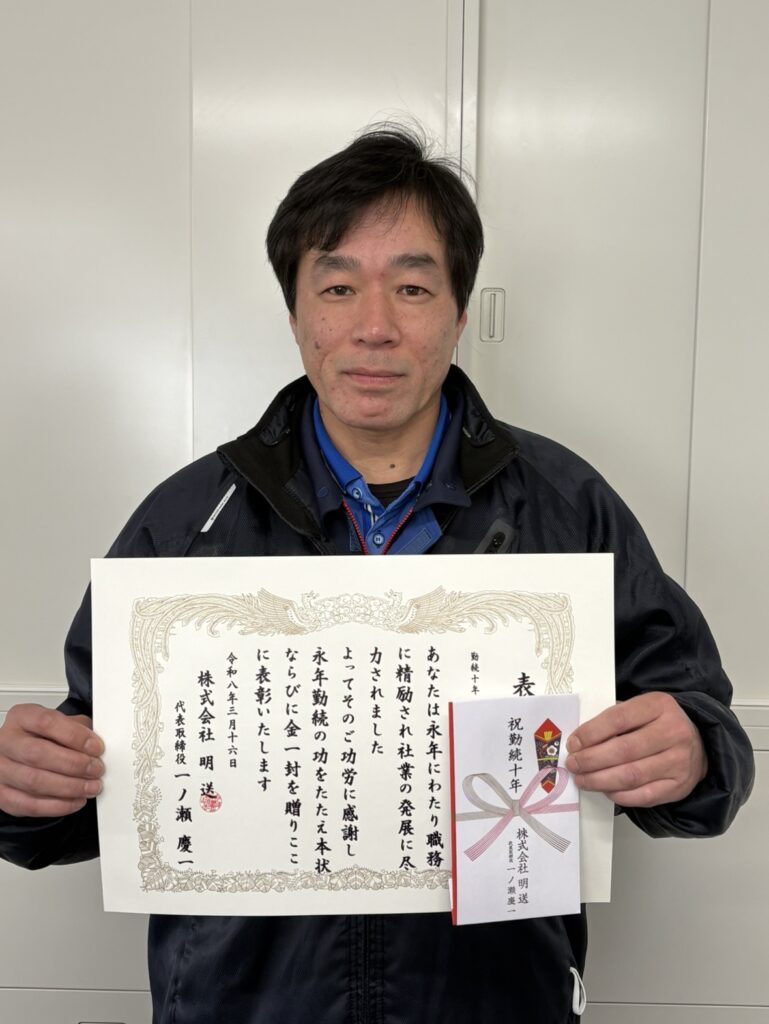 表
勤続十年
あなたは永年にわたり職務
に精励され社業の発展に尽
力されました
よってそのご功労に感謝し
永年勤続の功をたたえ本状
ならびに金一封を贈りここ
に表彰いたします
令和八年三月十六日
株式会社 明送
代表取締役 一ノ瀬 慶一
祝勤続十年
株式会社 明送
代表取締役 一ノ瀬慶一